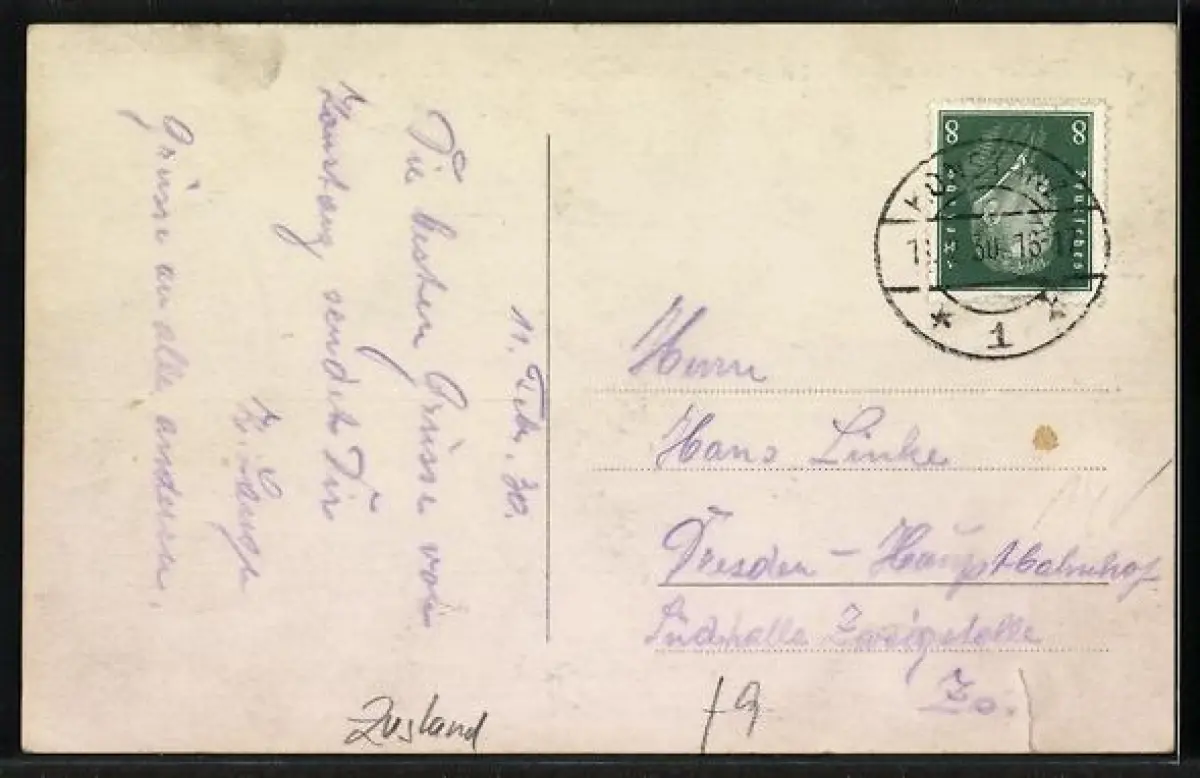 11. Feb. 30.
Die besten Grüsse von
sendet Dir
H. Lange
Grüsse an alle anderen.
8 8
Deutsches Reich
30.
* 1 *
Herrn
Hans Linke
Dresden – Hauptbahnhof
Südhalle Zweigstelle
Zustand